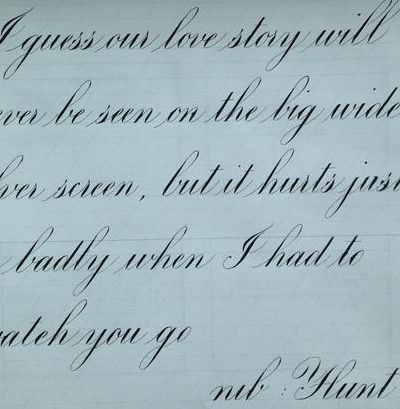 I guess our love story will
ever be seen on the big wide
lver screen, but it hurts just
badly when I had to
watch you go
nib : Hunt